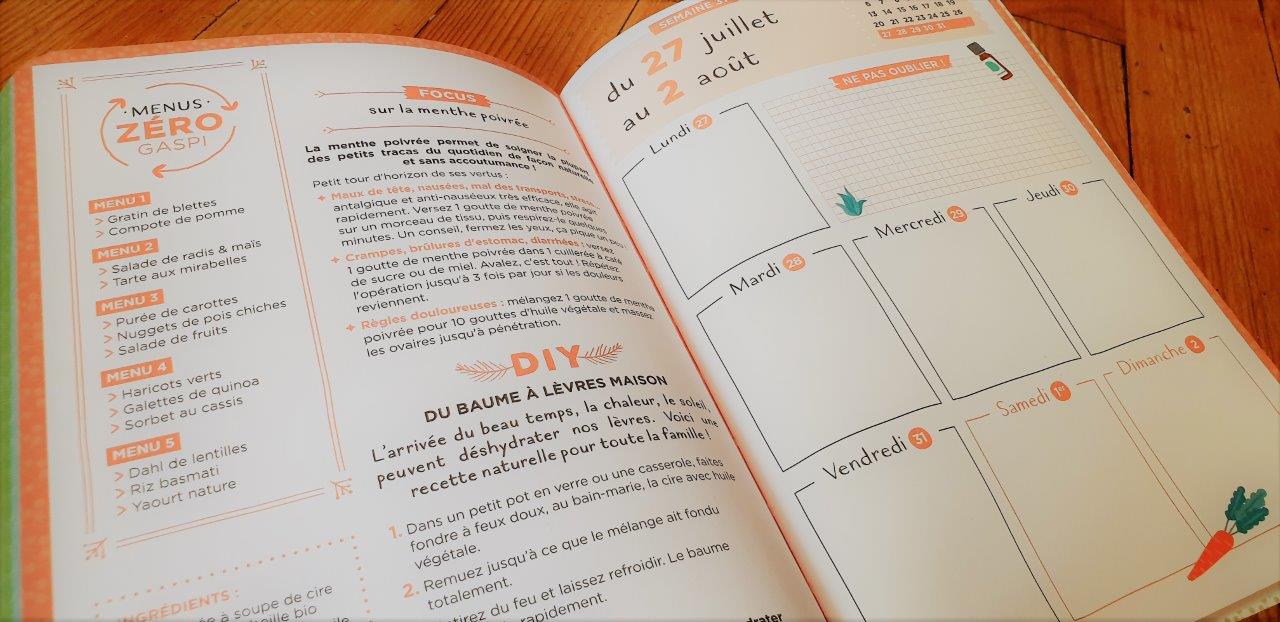 MENUS
ZÉRO
GASPI
MENU 1
> Gratin de blettes
> Compote de pomme
MENU 2
> Salade de radis & maïs
> Tarte aux mirabelles
MENU 3
> Purée de carottes
> Nuggets de pois chiches
> Salade de fruits
MENU 4
> Haricots verts
> Galettes de quinoa
> Sorbet au cassis
MENU 5
> Dahl de lentilles
> Riz basmati
> Yaourt nature
INGRÉDIENTS :
à soupe de cire
bio
FOCUS
sur la menthe poivrée
La menthe poivrée permet de soigner la plupart
des petits tracas du quotidien de façon naturelle
et sans accoutumance !
Petit tour d'horizon de ses vertus :
+ Maux de tête, nausées, mal des transports, stress...
antalgique et anti-nauséeux très efficace, elle agit
rapidement. Versez 1 goutte de menthe poivrée
sur un morceau de tissu, puis respirez-le quelques
minutes. Un conseil, fermez les yeux, ça pique un peu !
+ Crampes, brûlures d'estomac, diarrhées : versez
1 goutte de menthe poivrée dans 1 cuillerée à café
de sucre ou de miel. Avalez, c'est tout ! Répétez
l'opération jusqu'à 3 fois par jour si les douleurs
reviennent.
+ Règles douloureuses : mélangez 1 goutte de menthe
poivrée pour 10 gouttes d'huile végétale et massez
les ovaires jusqu'à pénétration.
DIY
DU BAUME À LÈVRES MAISON
L'arrivée du beau temps, la chaleur, le soleil,
peuvent déshydrater nos lèvres. Voici une
recette naturelle pour toute la famille !
1. Dans un petit pot en verre ou une casserole, faites
fondre à feux doux, au bain-marie, la cire avec huile
végétale.
2. Remuez jusqu'à ce que le mélange ait fondu
totalement.
du feu et laissez refroidir. Le baume
rapidement.
SEMAINE 31
du 27 juillet
au 2 août
13 14 15 16 17 18 19
20 21 22 23 24 25 26
27 28 29 30 31
NE PAS OUBLIER !
Lundi 27
Mardi 28
Mercredi 29
Jeudi 30
Vendredi 31
Samedi 1er
Dimanche 2